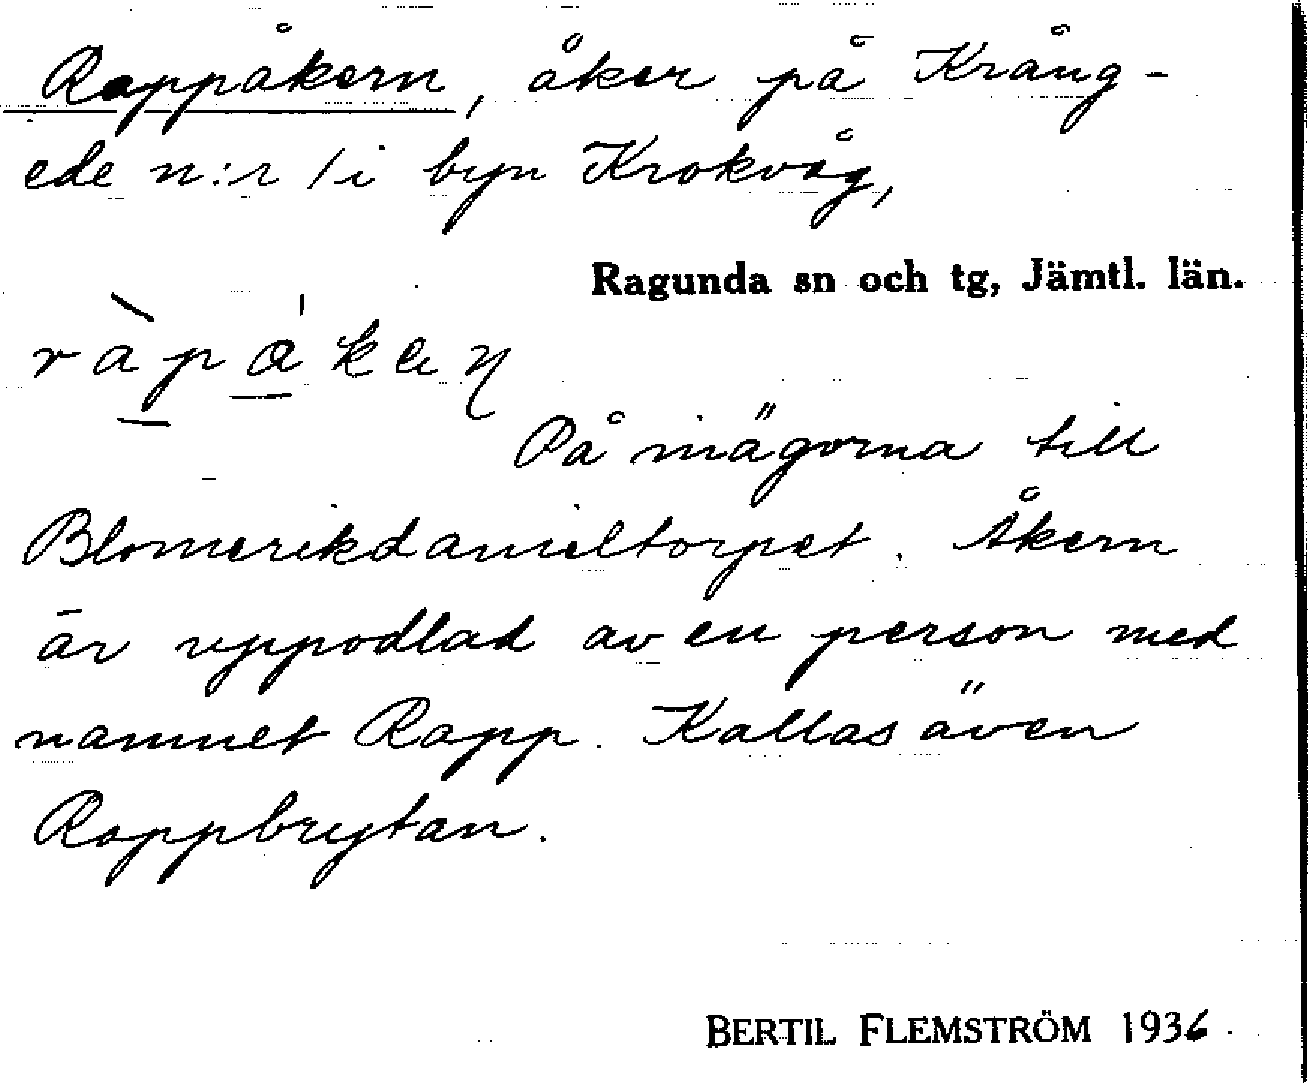 Rappåkern, åker på Krång-
ede n:r 1 i byn Krokvåg,
Ragunda sn och tg, Jämtl. län.
På mägorna till
Blomerikdanieltorpet. Åkern
är uppodlad av en person med
namnet Rapp. Kallas även
Rappbrytan.
BERTIL FLEMSTRÖM 1936